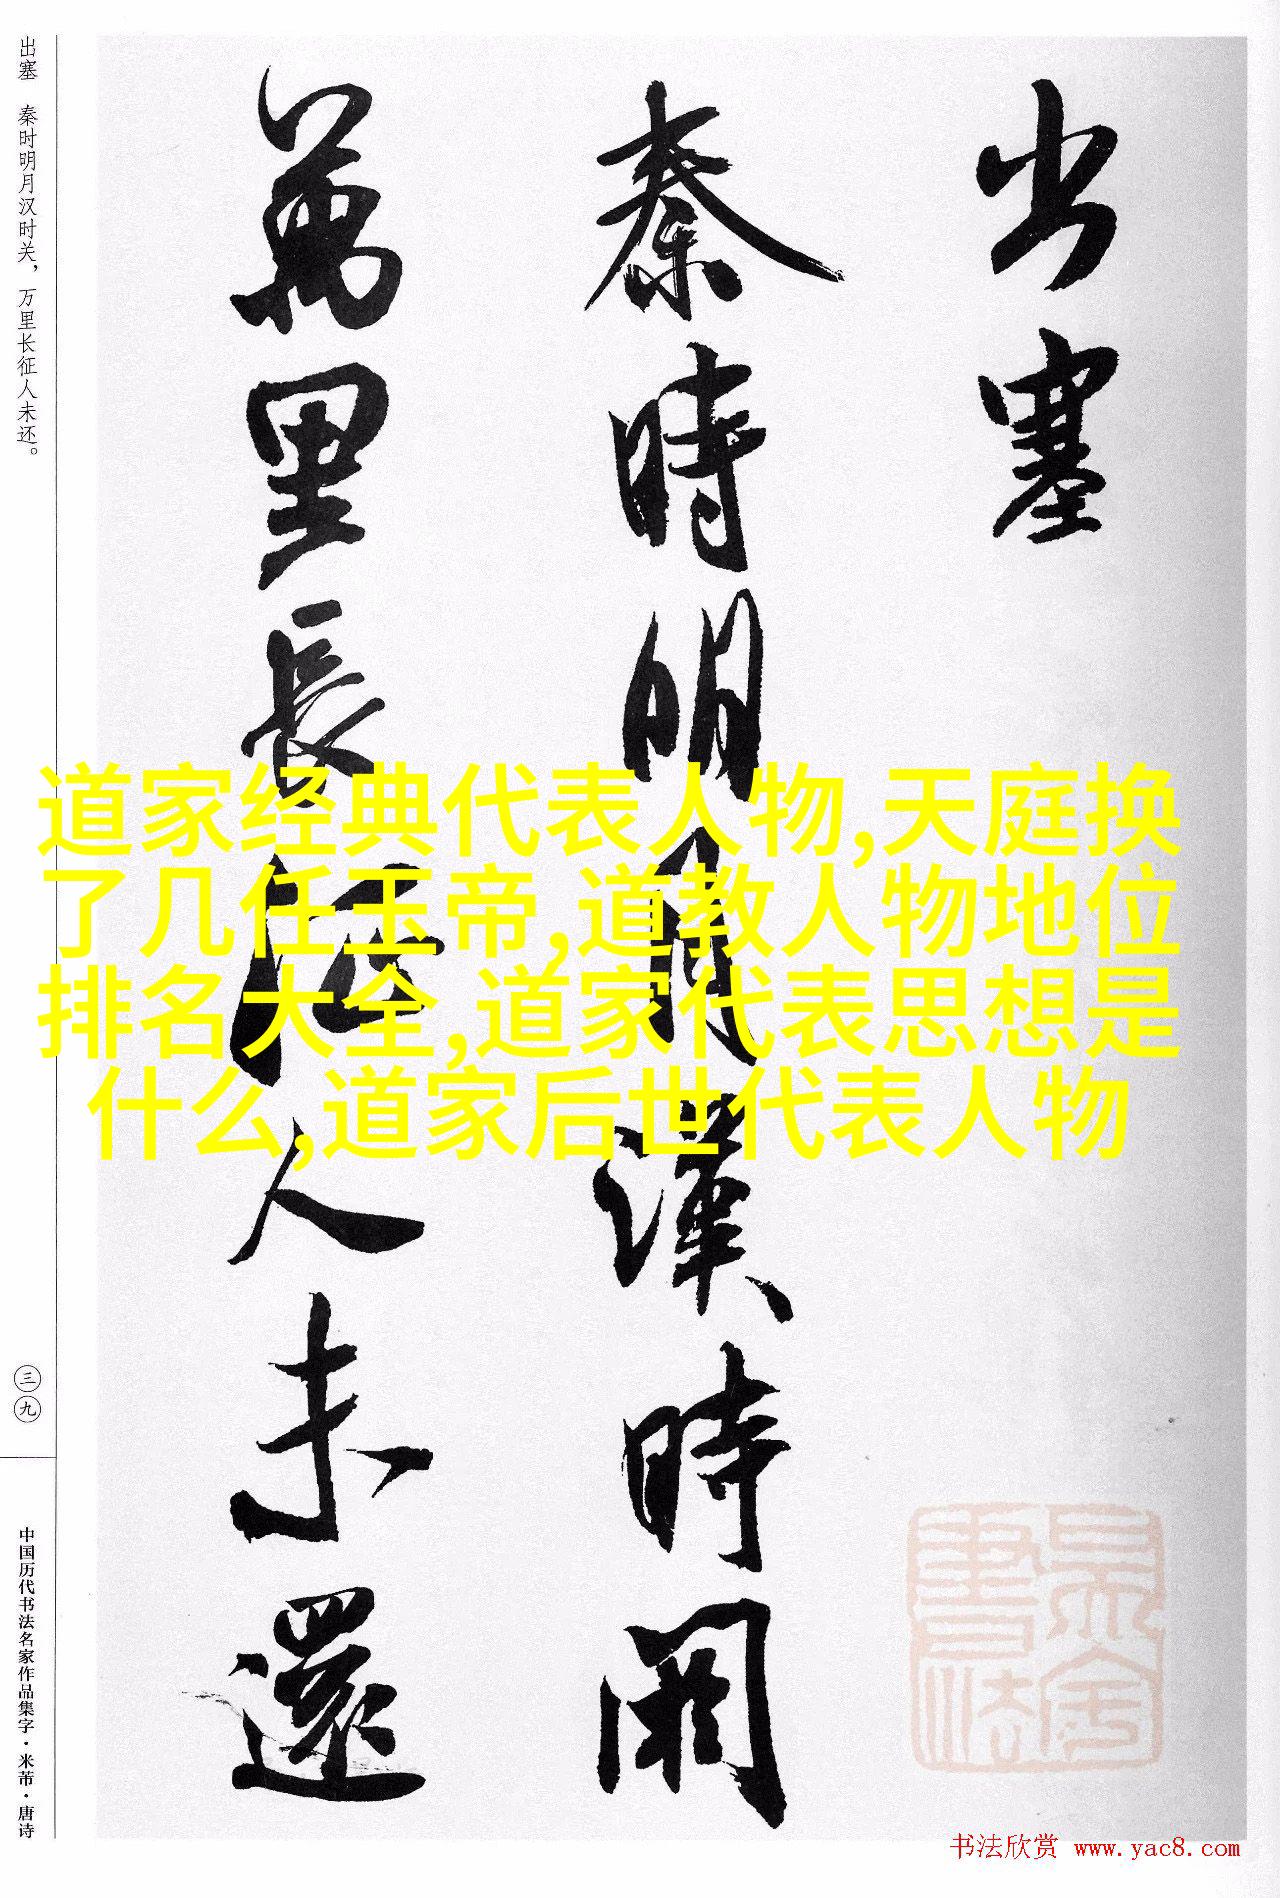 出塞
秦時明月漢時関
萬里長征人未還
出塞 秦时明月汉时关，万里长征人未还。
三九
中国历代书法名家作品集字·米芾·唐诗
道家经典代表人物,天庭换
了几任玉帝,道教人物地位
排名大全,道家代表思想是
什么,道家后世代表人物
书法欣赏 www.yac8.com